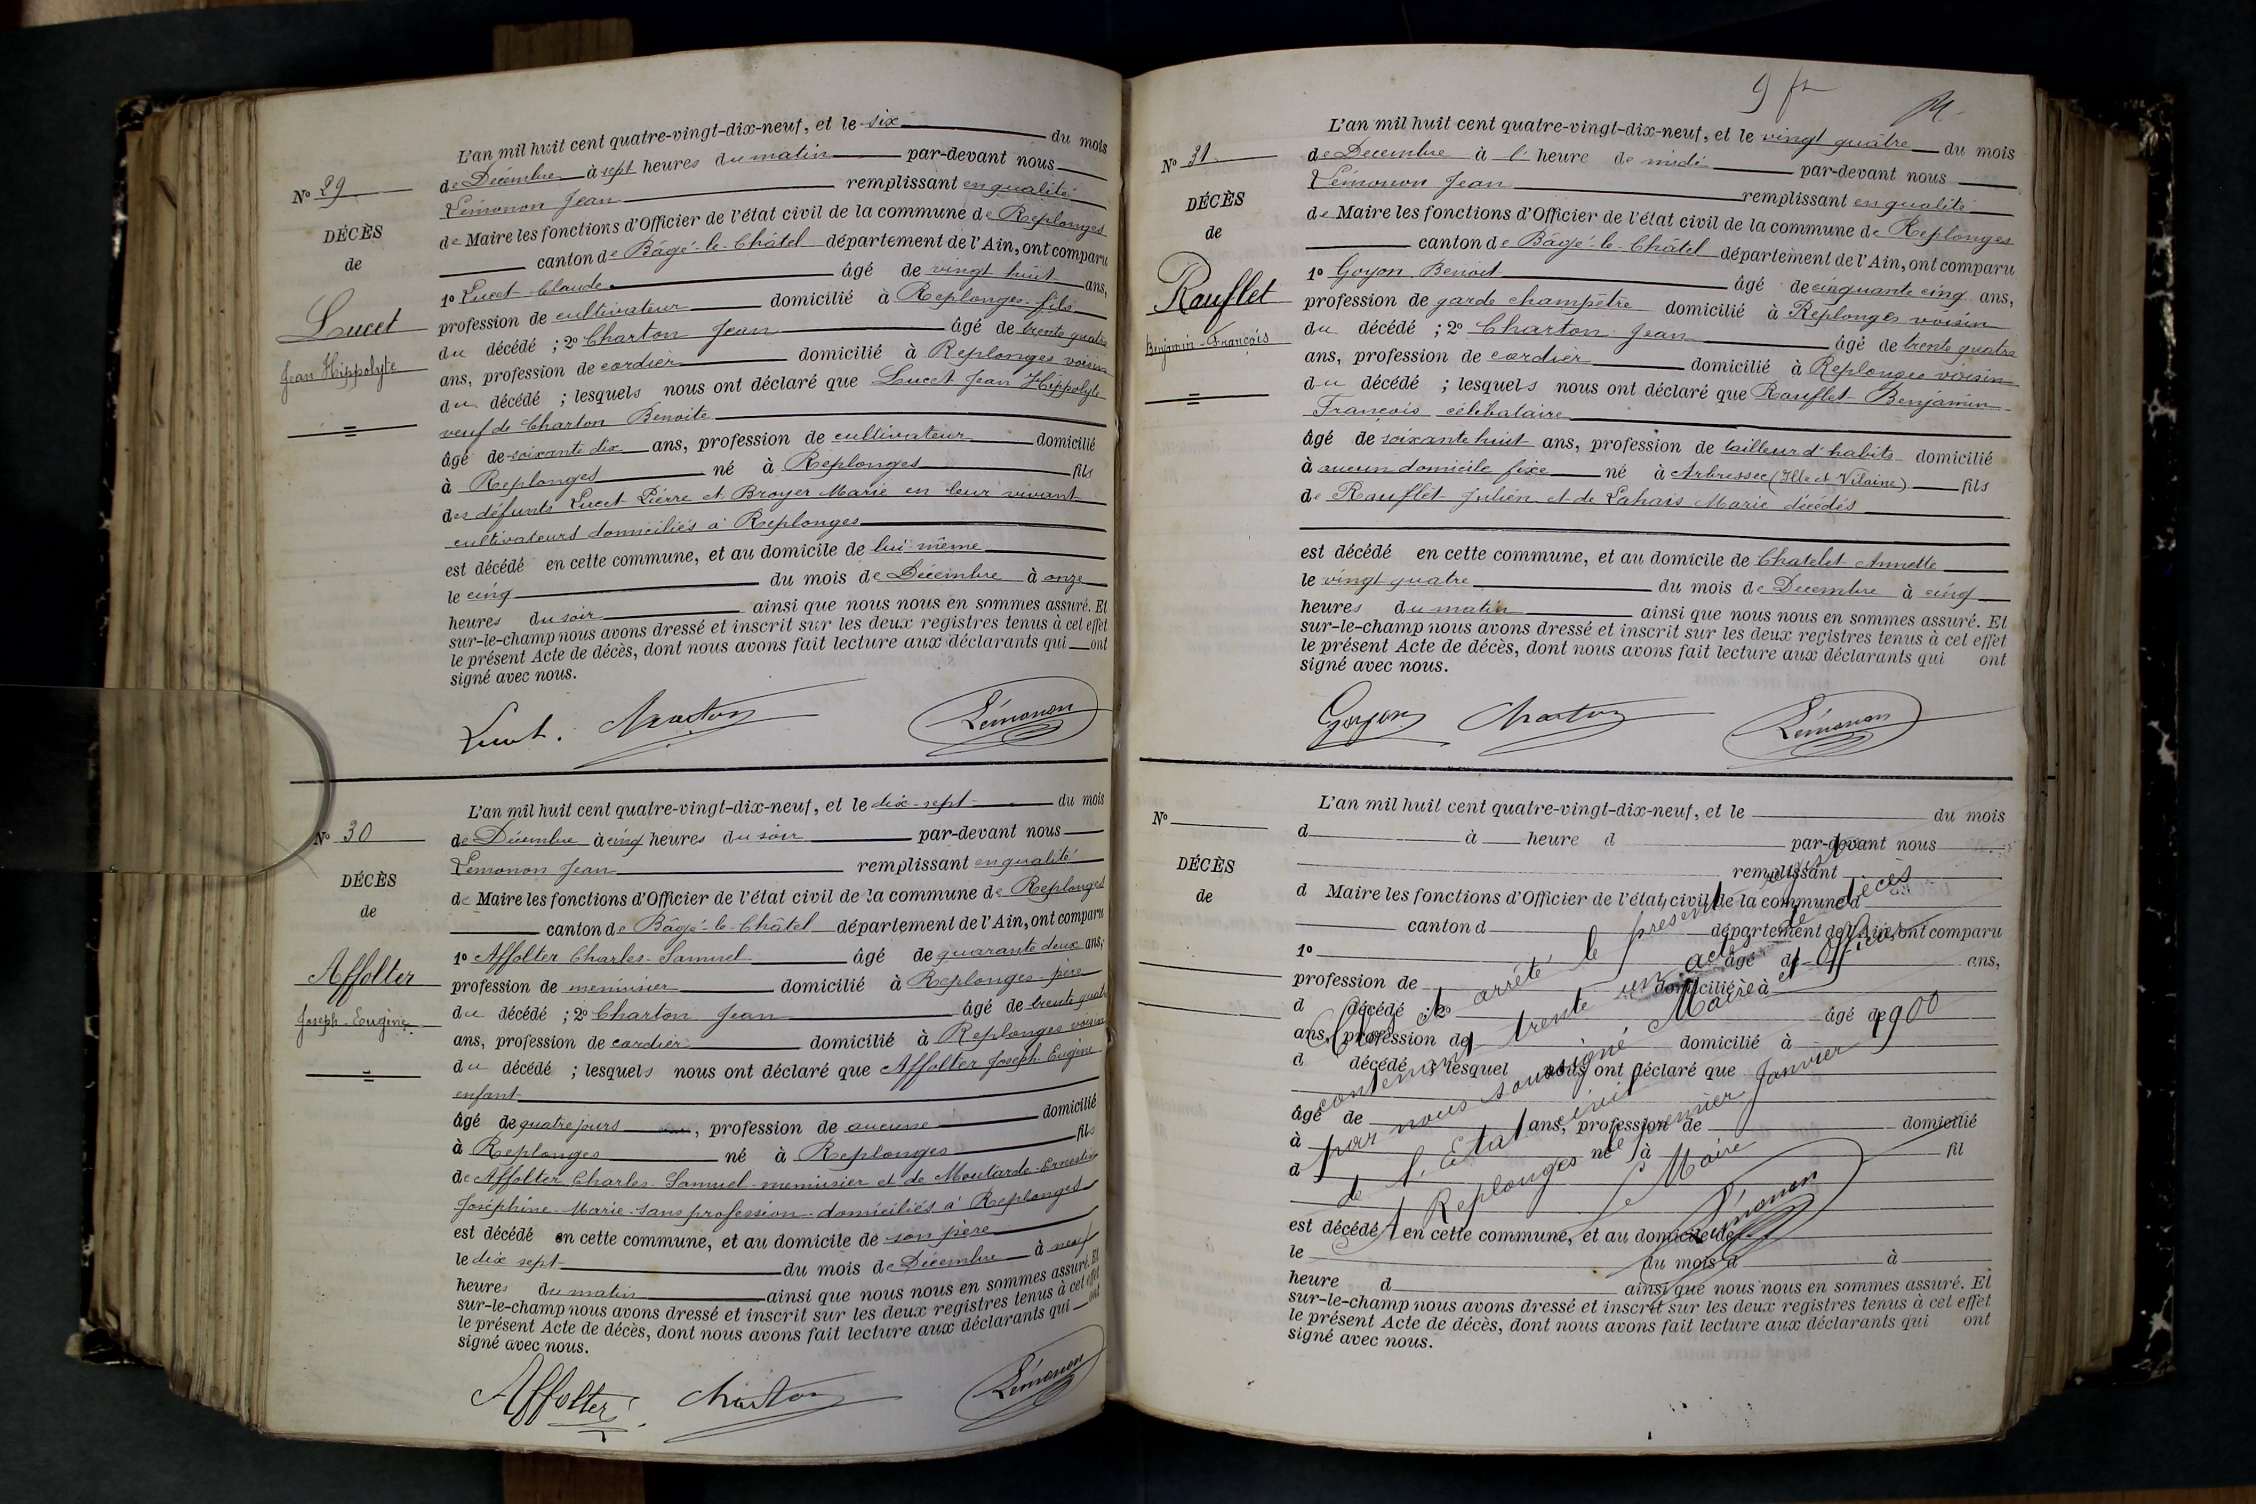 L'an mil huit cent quatre-vingt-dix-neuf, et le six du mois
de Décembre à sept heures du matin par-devant nous
Lémonon Jean remplissant en qualité
de Maire les fonctions d'Officier de l'état civil de la commune de Replonges
canton de Bâgé-le-Châtel département de l'Ain, ont comparu
1º Lucet Claude âgé de vingt huit ans,
profession de cultivateur domicilié à Replonges fils
du décédé ; 2º Charton Jean âgé de trente quatre
ans, profession de cordier domicilié à Replonges voisin
du décédé ; lesquels nous ont déclaré que Lucet Jean Hippolyte
veuf de Charton Benoite
âgé de soixante dix ans, profession de cultivateur domicilié
à Replonges né à Replonges fils
des défunts Lucet Pierre et Broyer Marie en leur vivant
cultivateurs domiciliés à Replonges
est décédé en cette commune, et au domicile de lui-même
le cinq du mois de Décembre à onze
heures du soir ainsi que nous nous en sommes assuré. Et
sur-le-champ nous avons dressé et inscrit sur les deux registres tenus à cet effet
le présent Acte de décès, dont nous avons fait lecture aux déclarants qui ont
signé avec nous.
Lucet. Charton Lémonon
Nº 29
DÉCÈS
de
Lucet
Jean Hippolyte
L'an mil huit cent quatre-vingt-dix-neuf, et le dix-sept du mois
de Décembre à cinq heures du soir par-devant nous
Lémonon Jean remplissant en qualité
de Maire les fonctions d'Officier de l'état civil de la commune de Replonges
canton de Bâgé-le-Châtel département de l'Ain, ont comparu
1º Affolter Charles-Samuel âgé de quarante deux ans,
profession de menuisier domicilié à Replonges père
du décédé ; 2º Charton Jean âgé de trente quatre
ans, profession de cordier domicilié à Replonges voisin
du décédé ; lesquels nous ont déclaré que Affolter Joseph-Eugène
enfant
âgé de quatre jours , profession de aucune domicilié
à Replonges né à Replonges fils
de Affolter Charles-Samuel menuisier et de Moutarde Ernestine
Joséphine-Marie-sans profession domiciliés à Replonges
est décédé en cette commune, et au domicile de son père
le dix sept du mois de Décembre à neuf
heures du matin ainsi que nous nous en sommes assuré. Et
sur-le-champ nous avons dressé et inscrit sur les deux registres tenus à cet effet
le présent Acte de décès, dont nous avons fait lecture aux déclarants qui ont
signé avec nous.
Affolter Charton Lémonon
Nº 30
DÉCÈS
de
Affolter
Joseph-Eugène.
L'an mil huit cent quatre-vingt-dix-neuf, et le vingt quatre du mois
de Decembre à l' heure de midi par-devant nous
Lémonon Jean remplissant en qualité
de Maire les fonctions d'Officier de l'état civil de la commune de Replonges
canton de Bâgé-le-Châtel département de l'Ain, ont comparu
1º Goyon Benoit âgé de cinquante cinq ans,
profession de garde champêtre domicilié à Replonges voisin
du décédé ; 2º Charton Jean âgé de trente quatre
ans, profession de cordier domicilié à Replonges voisin
du décédé ; lesquels nous ont déclaré que Rouflet Benjamin-
François célibataire
âgé de soixante huit ans, profession de tailleur d'habits domicilié
à aucun domicile fixe né à Arbressec (Ille et Vilaine) fils
de Rouflet Julien et de Lahais Marie décédés
est décédé en cette commune, et au domicile de Chatelet Annette
le vingt quatre du mois de Decembre à cinq
heures du matin ainsi que nous nous en sommes assuré. Et
sur-le-champ nous avons dressé et inscrit sur les deux registres tenus à cet effet
le présent Acte de décès, dont nous avons fait lecture aux déclarants qui ont
signé avec nous.
Goyon Charton Lémonon
Nº 31
DÉCÈS
de
Rouflet
Benjamin-François
L'an mil huit cent quatre-vingt-dix-neuf, et le du mois
d à heure d par-devant nous
remplissant
d Maire les fonctions d'Officier de l'état civil de la commune d
canton d département de l'Ain, ont comparu
1º âgé de ans,
profession de domicilié à
d décédé ; 2º âgé de
ans, profession de domicilié à
d décédé ; lesquel nous ont déclaré que
âgé de ans, profession de domicilié
à né à
d fil
est décédé en cette commune, et au domicile de
le du mois d à
heure d ainsi que nous nous en sommes assuré. Et
sur-le-champ nous avons dressé et inscrit sur les deux registres tenus à cet effet
le présent Acte de décès, dont nous avons fait lecture aux déclarants qui ont
signé avec nous.
Nº
DÉCÈS
de
Clos et arrêté le présent registre
contenant trente un actes de décès
par nous soussigné Maire et Officier
de l'Etat civil
A Replonges le premier Janvier 1900
Le Maire
Lémonon